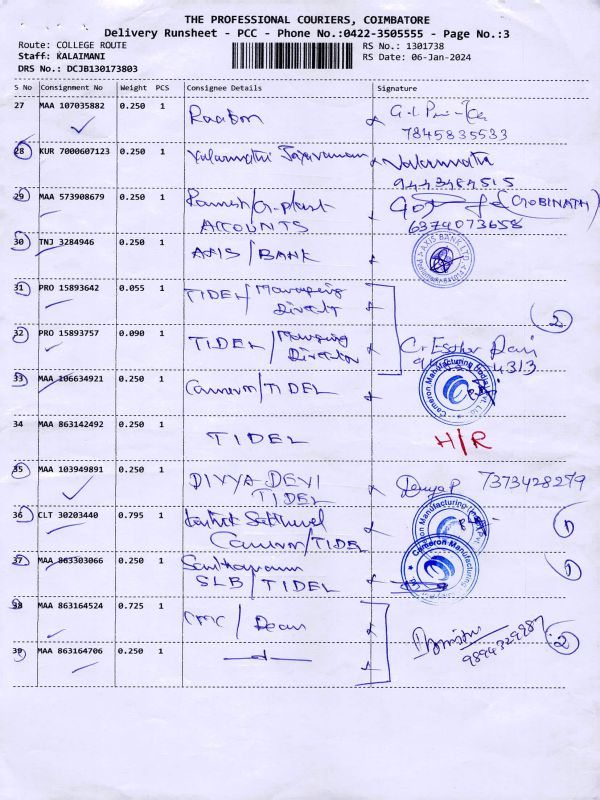 THE PROFESSIONAL COURIERS, COIMBATORE
Delivery Runsheet - PCC - Phone No.:0422-3505555 - Page No.:3
Route: COLLEGE ROUTE RS No.: 1301738
Staff: KALAIMANI RS Date: 06-Jan-2024
DRS No.: DCJB130173803
S No Consignment No Weight PCS Consignee Details Signature
27 MAA 107035882 0.250 1
7845835533
28 KUR 7000607123 0.250 1
9443484515
29 MAA 573908679 0.250 1 (GOBINATH)
ACCOUNTS 6374073658
30 TNJ 3284946 0.250 1 AXIS / BANK AXIS BANK LTD
31 PRO 15893642 0.055 1 TIDEL / Managing
Director 2
32 PRO 15893757 0.090 1 TIDEL / Managing
Director 4313
33 MAA 106634921 0.250 1 Cameron / TIDEL Cameron Manufacturing (India) Pvt. Ltd.
34 MAA 863142492 0.250 1 TIDEL H/R
35 MAA 103949891 0.250 1 DIVYA DEVI Divya P 7373428279
TIDEL
36 CLT 30203440 0.795 1 Cameron Manufacturing 1
Cameron / TIDEL
37 MAA 863303066 0.250 1 Cameron Manufacturing 1
SLB / TIDEL
38 MAA 863164524 0.725 1 CMC / Dean
9894329987 2
39 MAA 863164706 0.250 1